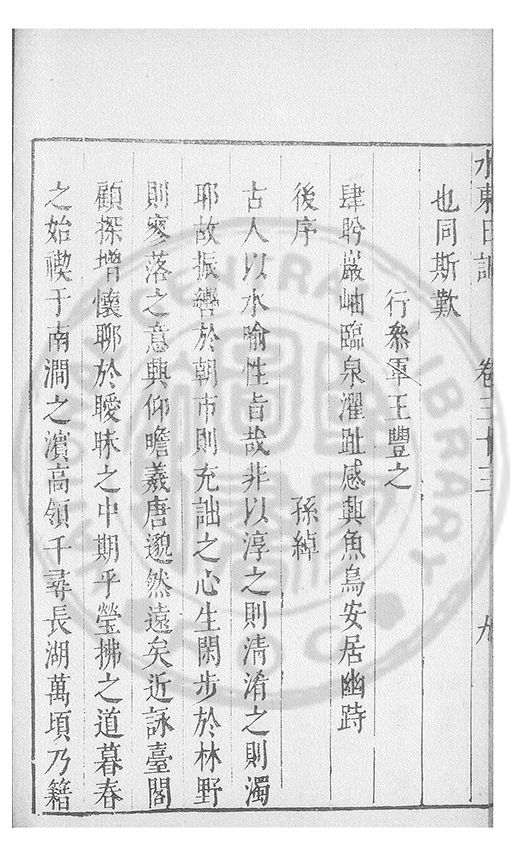 水東日記 卷三十三 九
也同斯歎
行叅軍王豐之
肆盻巖岫臨泉濯趾感興魚鳥安居幽畤
後序 孫綽
古人以水喻性旨哉非以渟之則清淆之則濁
耶故振轡於朝市則充詘之心生閑步於林野
則寥落之意興仰瞻羲唐邈然遠矣近詠臺閣
顧探增懷聊於曖昧之中期乎瑩拂之道暮春
之始禊于南澗之濱高領千尋長湖萬頃乃籍